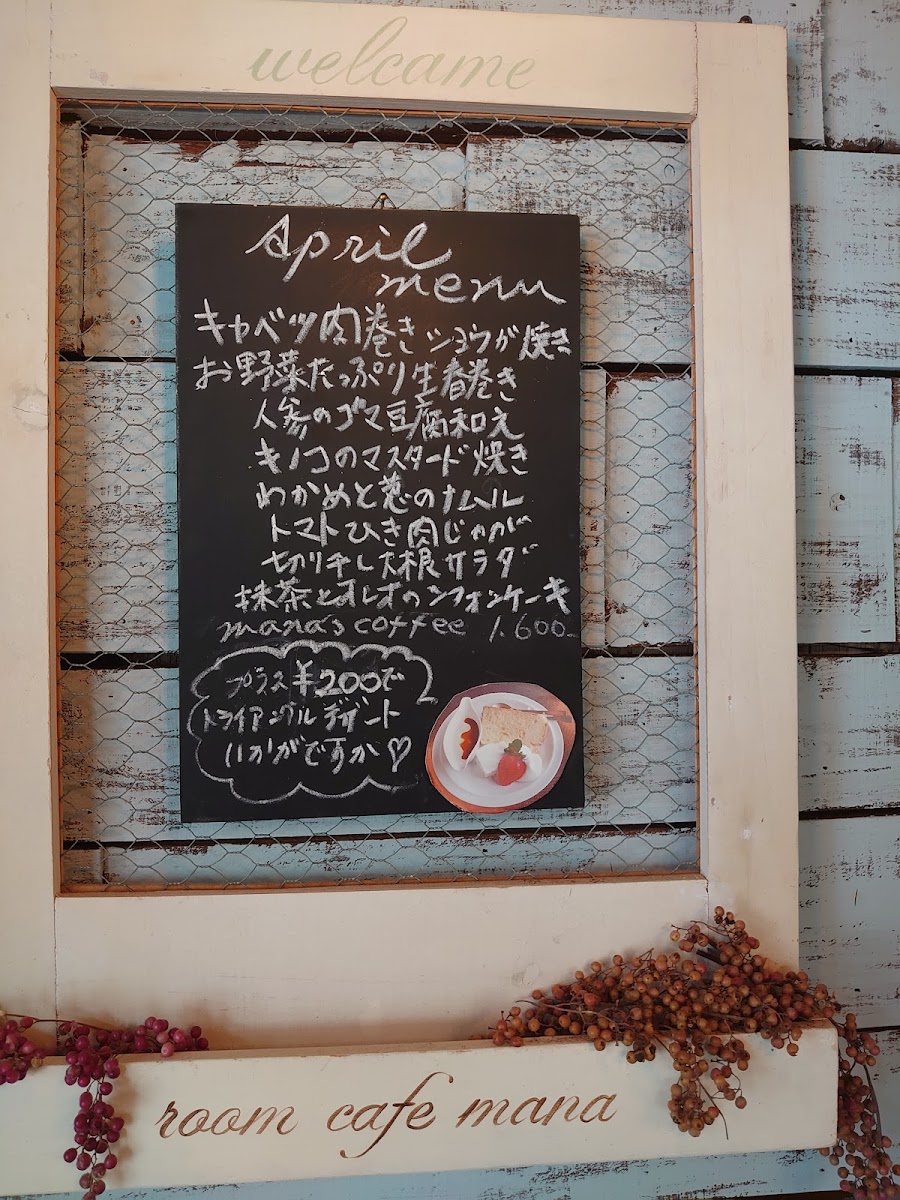 welcame
April
menu
キャベツ肉巻きショウが焼き
お野菜たっぷり生春巻き
人参のゴマ豆腐和え
キノコのマスタード焼き
わかめと葱のナムル
トマトひき肉じゃが
切り干し大根サラダ
抹茶とオレオのシフォンケーキ
mana's coffee 1.600-
プラス¥200で
トライアングルデザート
いかがですか♡
room cafe mana